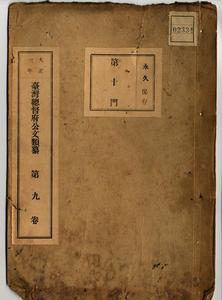 大正
三年
臺灣總督府公文類纂 第九卷
永久保存
第十門